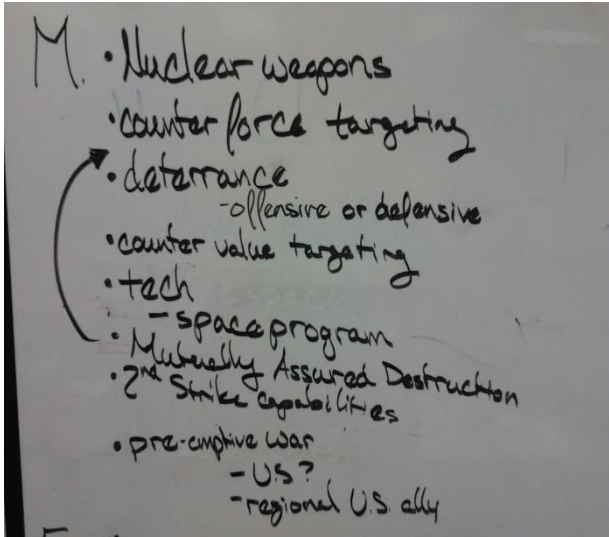 M. • Nuclear weapons
• counter force targeting
• deterrance
- offensive or defensive
• counter value targeting
• tech
- space program
• Mutually Assured Destruction
• 2nd Strike capabilities
• pre-emptive war
- U.S?
- regional U.S. ally